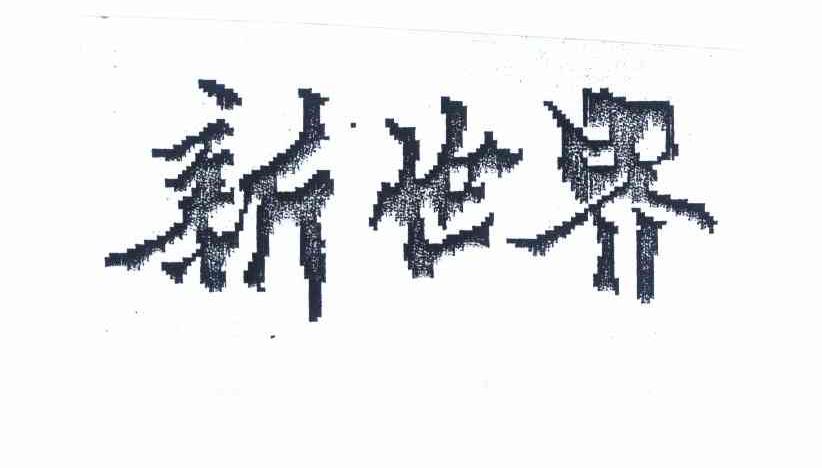 新世界